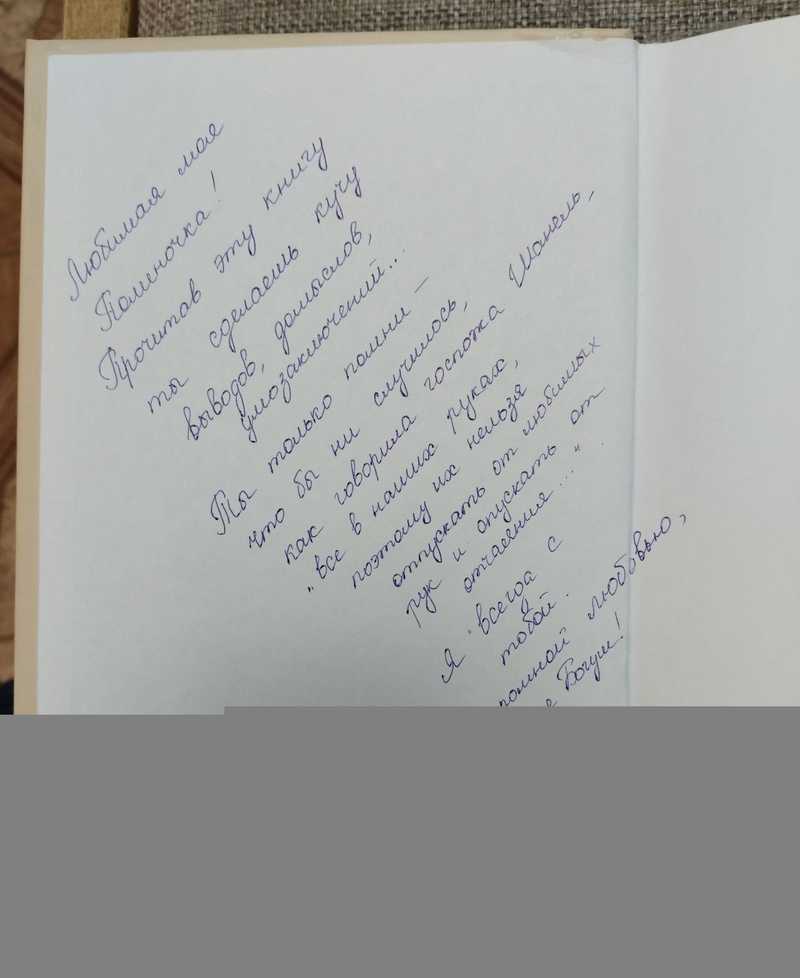 Любимая моя
Полиночка!
Прочитав эту книгу
ты сделаешь кучу
выводов, домыслов,
умозаключений...
Ты только помни –
что бы ни случилось,
как говорила госпожа Шанель,
"все в наших руках,
поэтому их нельзя
отпускать от любимых
рук и опускать от
отчаяния..."
Я всегда с
тобой.
любовью,